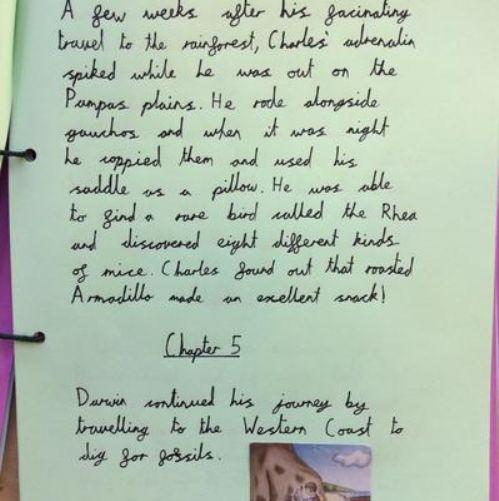 A few weeks after his facinating
travel to the rainforest, Charles' adrenalin
spiked while he was out on the
Pampas plains. He rode alongside
gauchos and when it was night
he coppied them and used his
saddle as a pillow. He was able
to find a rare bird called the Rhea
and discovered eight different kinds
of mice. Charles found out that roasted
Armadillo made an excellent snack!
Chapter 5
Darwin continued his journey by
travelling to the Western Coast to
dig for fossils.